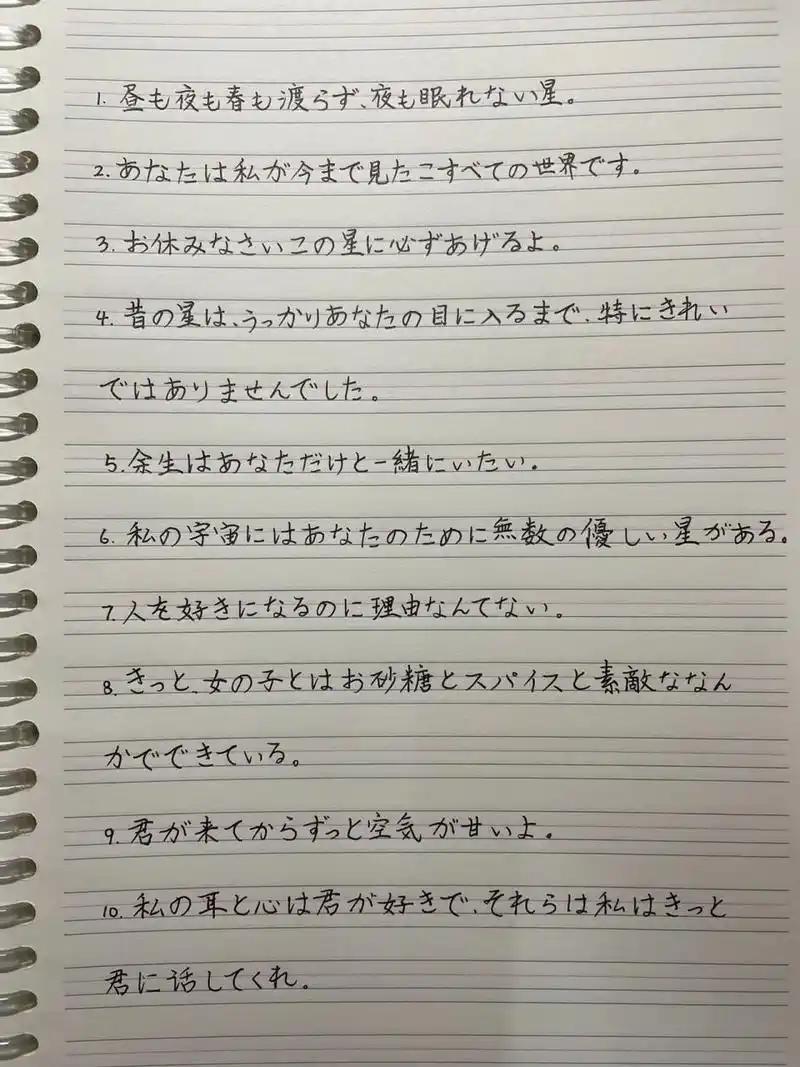 1. 昼も夜も春も渡らず、夜も眠れない星。
2. あなたは私が今まで見たこすべての世界です。
3. お休みなさいこの星に必ずあげるよ。
4. 昔の星は、うっかりあなたの目に入るまで、特にきれい
ではありませんでした。
5. 余生はあなただけと一緒にいたい。
6. 私の宇宙にはあなたのために無数の優しい星がある。
7. 人を好きになるのに理由なんてない。
8. きっと、女の子とはお砂糖とスパイスと素敵ななん
かでできている。
9. 君が来てからずっと空気が甘いよ。
10. 私の耳と心は君が好きで、それらは私はきっと
君に話してくれ。